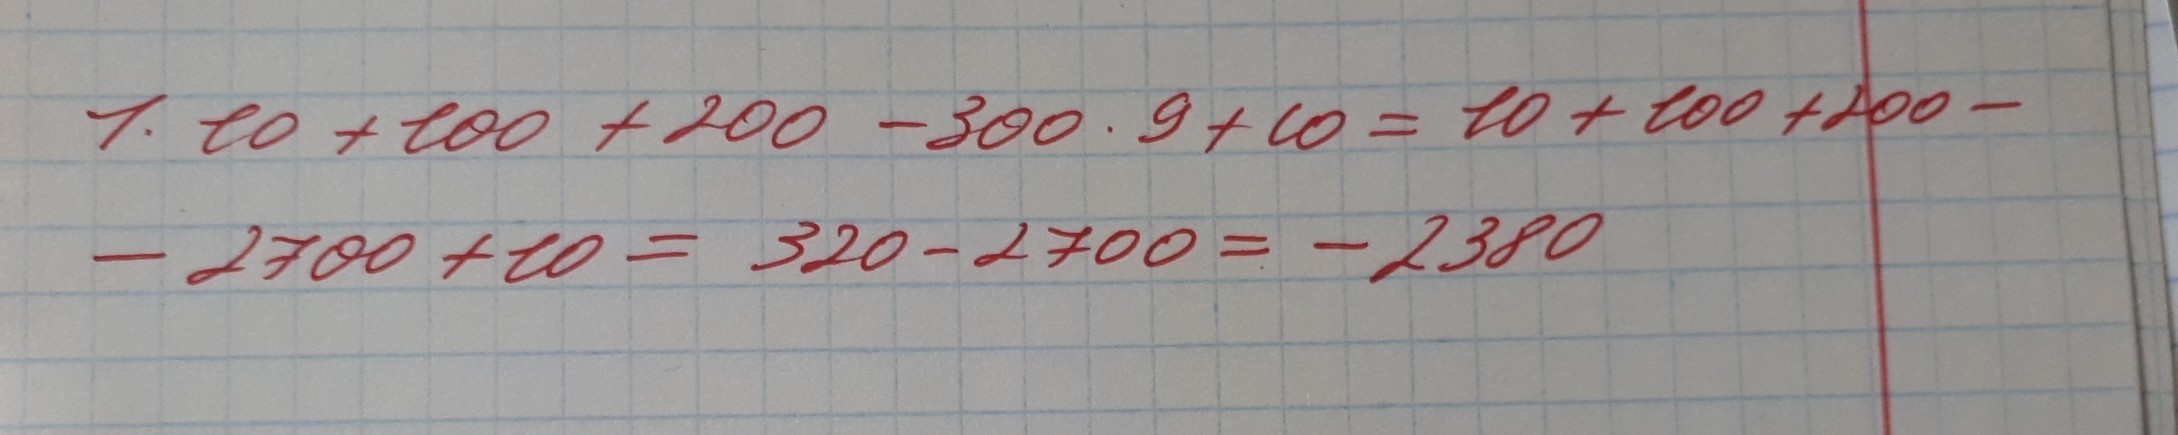 1. 10 + 100 + 200 - 300 · 9 + 10 = 10 + 100 + 200 -
- 2700 + 10 = 320 - 2700 = - 2380